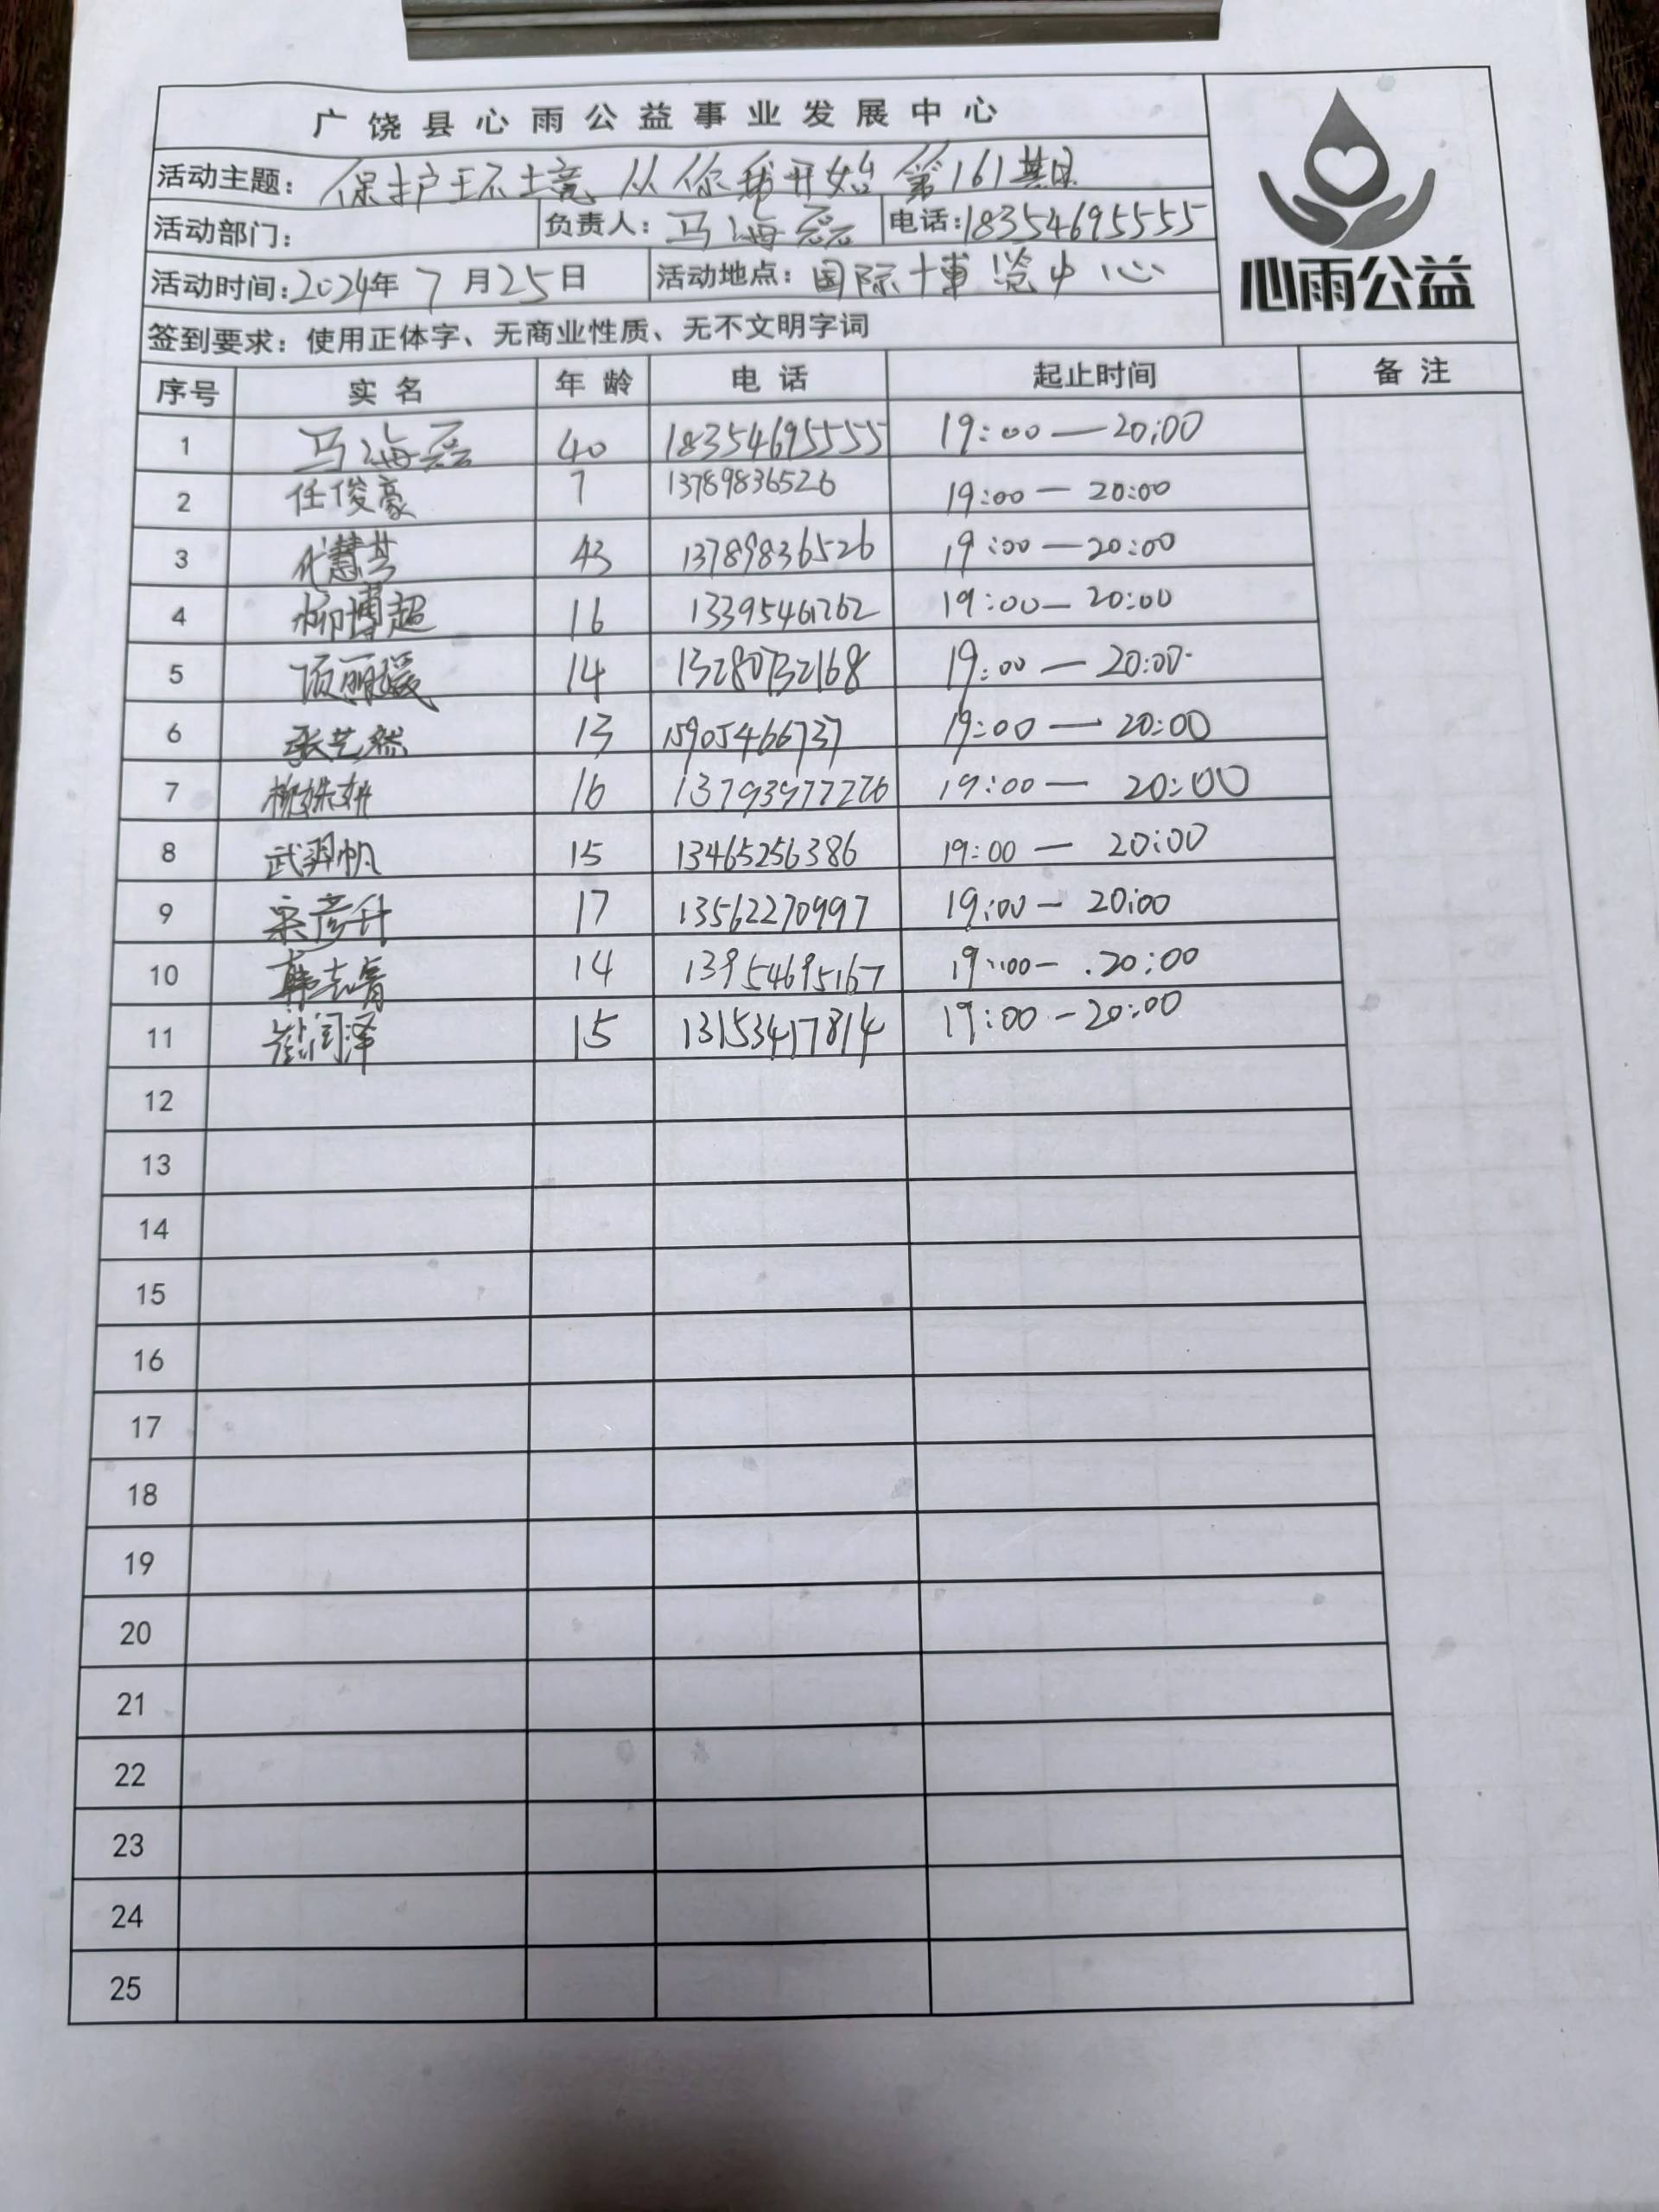 广饶县心雨公益事业发展中心
活动主题：保护环境 从你我开始 第161期
活动部门： 负责人：马海磊 电话：18354695555
活动时间：2024年7月25日 活动地点：国际博览中心
签到要求：使用正体字、无商业性质、无不文明字词
心雨公益
序号 实名 年龄 电话 起止时间 备注
1 马海磊 40 18354695555 19:00—20:00
2 任俊豪 7 13789836526 19:00—20:00
3 代慧芸 43 13789836526 19:00—20:00
4 柳博超 16 13395461262 19:00—20:00
5 14 13280732168 19:00—20:00
6 张艺然 13 15905466737 19:00—20:00
7 16 13793977226 19:00—20:00
8 武羿帆 15 13465256386 19:00—20:00
9 宋彦升 17 13562270997 19:00—20:00
10 14 13954695167 19:00—20:00
11 崔润泽 15 13153417814 19:00—20:00
12
13
14
15
16
17
18
19
20
21
22
23
24
25